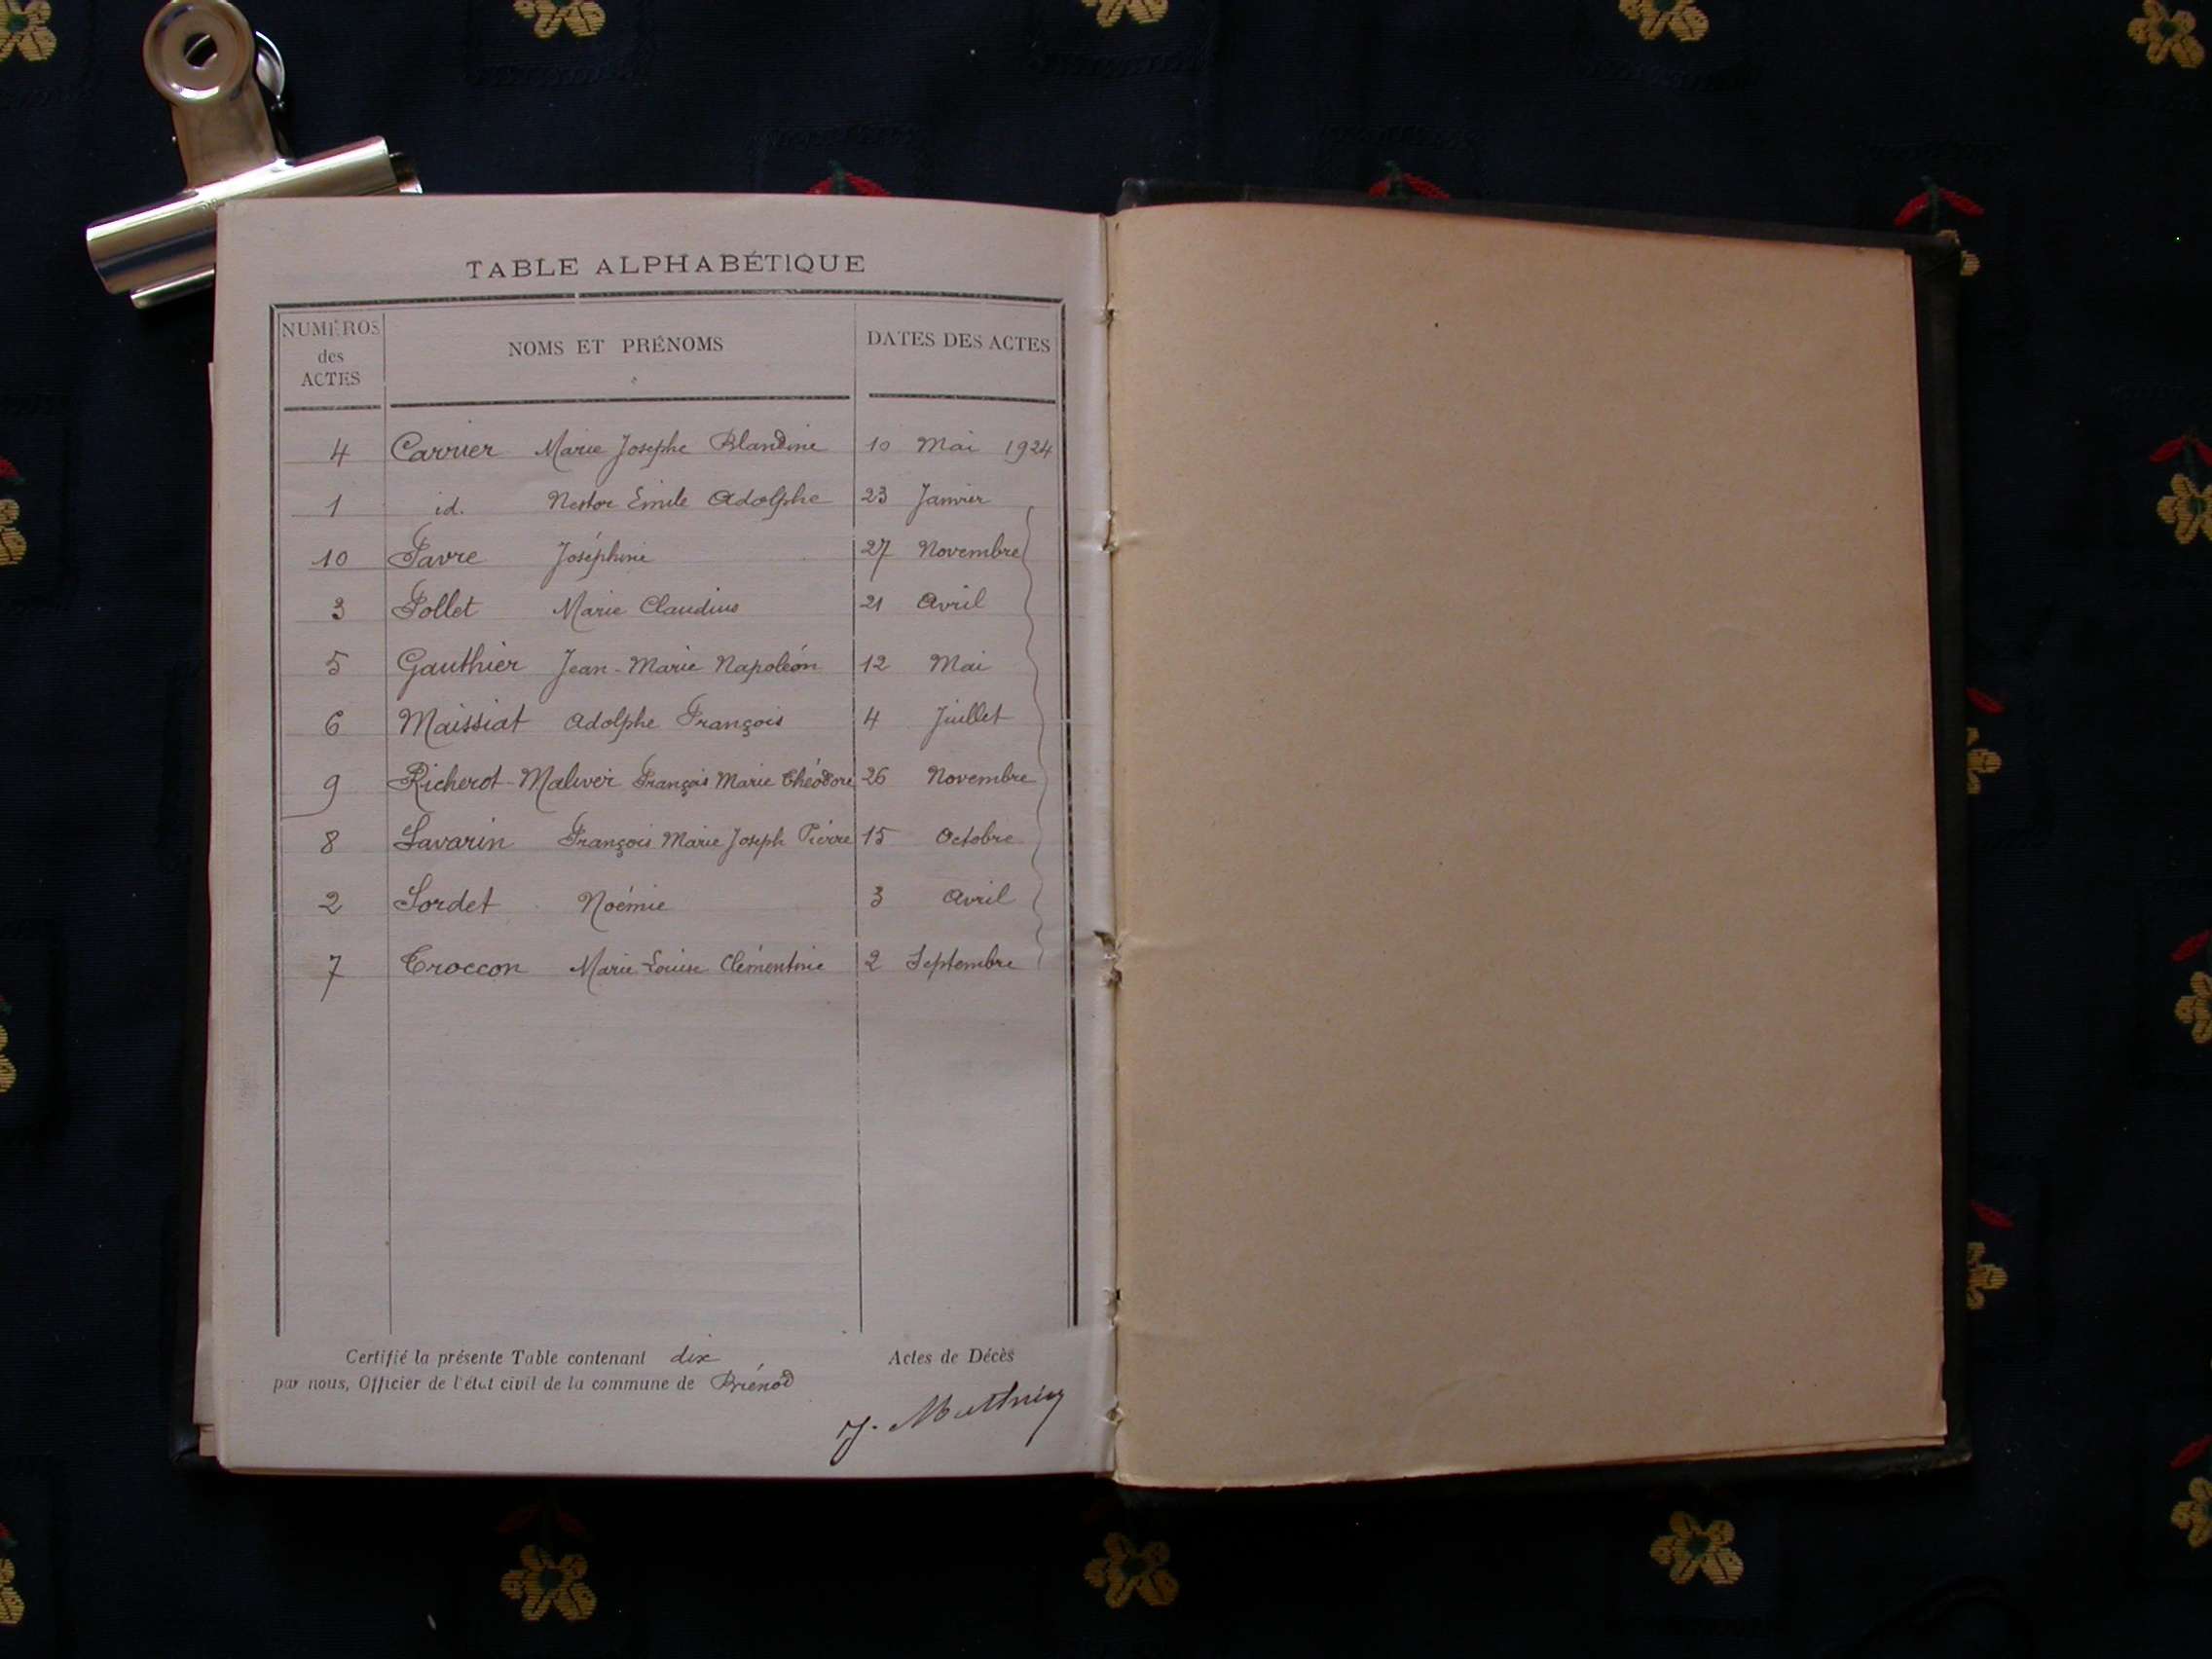 TABLE ALPHABÉTIQUE
NUMÉROS des ACTES NOMS ET PRÉNOMS DATES DES ACTES
4 Carrier Marie Josephe Blandine 10 Mai 1924
1 id. Nestor Emile Adolphe 23 Janvier
10 Favre Joséphine 27 Novembre
3 Follet Marie Claudius 21 Avril
5 Gauthier Jean-Marie Napoléon 12 Mai
6 Maissiat Adolphe François 4 Juillet
9 Richerot-Maliver François Marie Théodore 26 Novembre
8 Savarin François Marie Joseph Pierre 15 Octobre
2 Sordet Noémie 3 Avril
7 Troccon Marie-Louise Clémentine 2 Septembre
Certifié la présente Table contenant dix Actes de Décès
par nous, Officier de l'état civil de la commune de Brénod